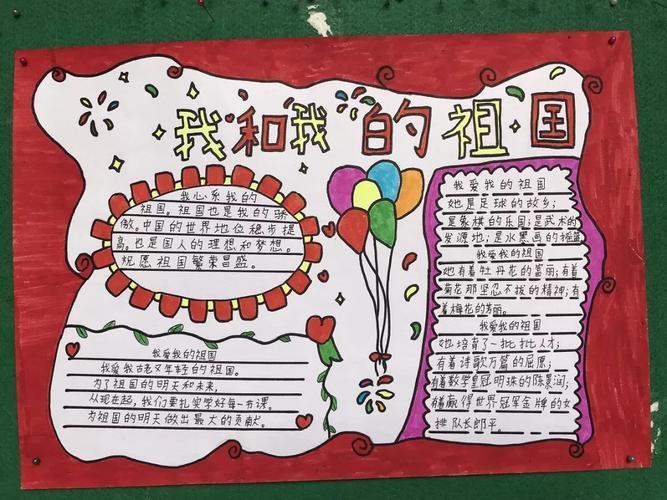 我和我的祖国
我心系我的
祖国。祖国也是我的骄
傲。中国的世界地位稳步提
高。也是国人的理想和梦想。
祝愿祖国繁荣昌盛。
我爱我的祖国
我爱我古老又年轻的祖国。
为了祖国的明天和未来,
从现在起,我们要扎实学好每一节课。
为祖国的明天做出最大的贡献。
我爱我的祖国
她是足球的故乡;
是象棋的乐园;是武术的
发源地;是水墨画的摇篮
我爱我的祖国
她有着牡丹花的富丽;有着
菊花那坚忍不拔的精神;有
着梅花的芳丽。
我爱我的祖国
她培育了一批批人才;
有着诗歌万篇的屈原;
有着数学皇冠明珠的陈景润;
有着赢得世界冠军金牌的女
排队长郎平。